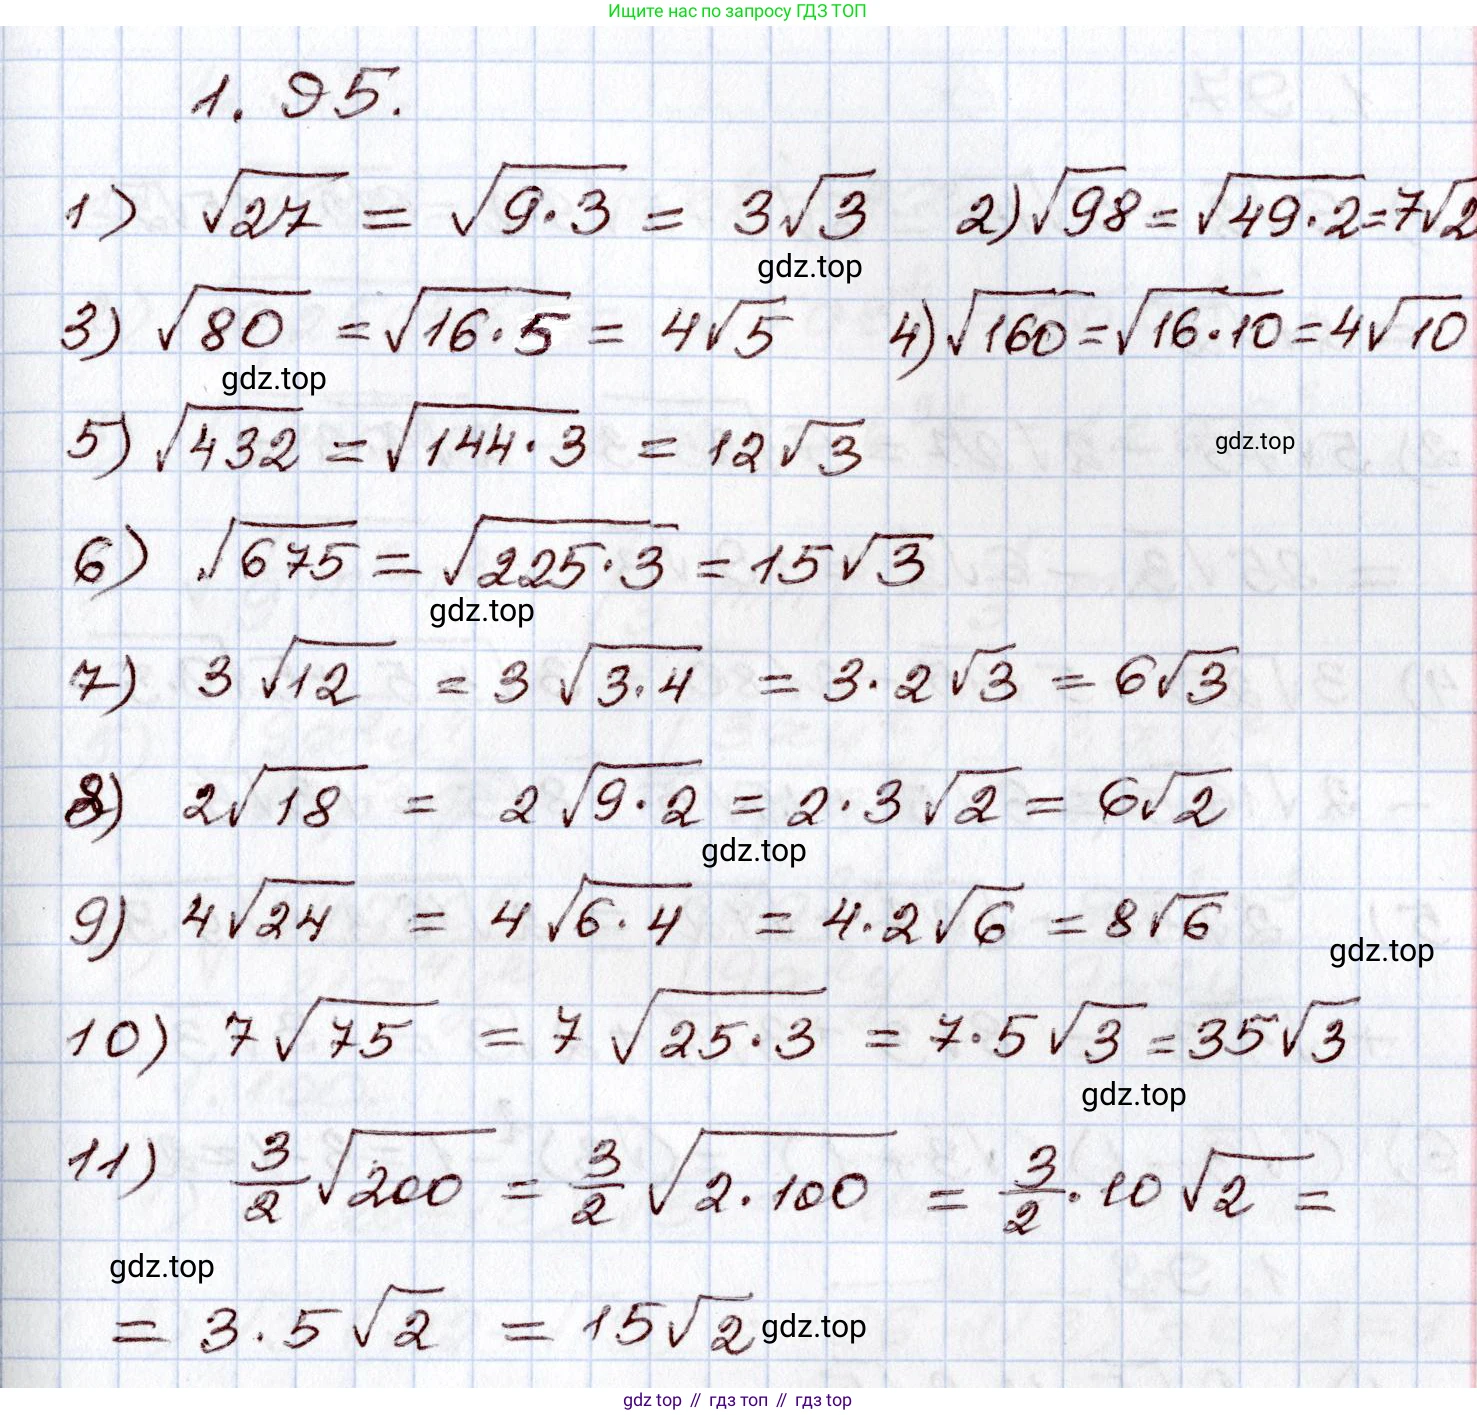 Ищите нас по запросу ГДЗ ТОП
1.95.
1) √27 = √9·3 = 3√3 2) √98 = √49·2 = 7√2
gdz.top
3) √80 = √16·5 = 4√5 4) √160 = √16·10 = 4√10
gdz.top
5) √432 = √144·3 = 12√3
gdz.top
6) √675 = √225·3 = 15√3
gdz.top
7) 3√12 = 3√3·4 = 3·2√3 = 6√3
8) 2√18 = 2√9·2 = 2·3√2 = 6√2
gdz.top
9) 4√24 = 4√6·4 = 4·2√6 = 8√6
gdz.top
10) 7√75 = 7√25·3 = 7·5√3 = 35√3
gdz.top
11) 3/2√200 = 3/2√2·100 = 3/2·10√2 =
gdz.top
= 3·5√2 = 15√2
gdz.top
gdz top // гдз топ // гдз top